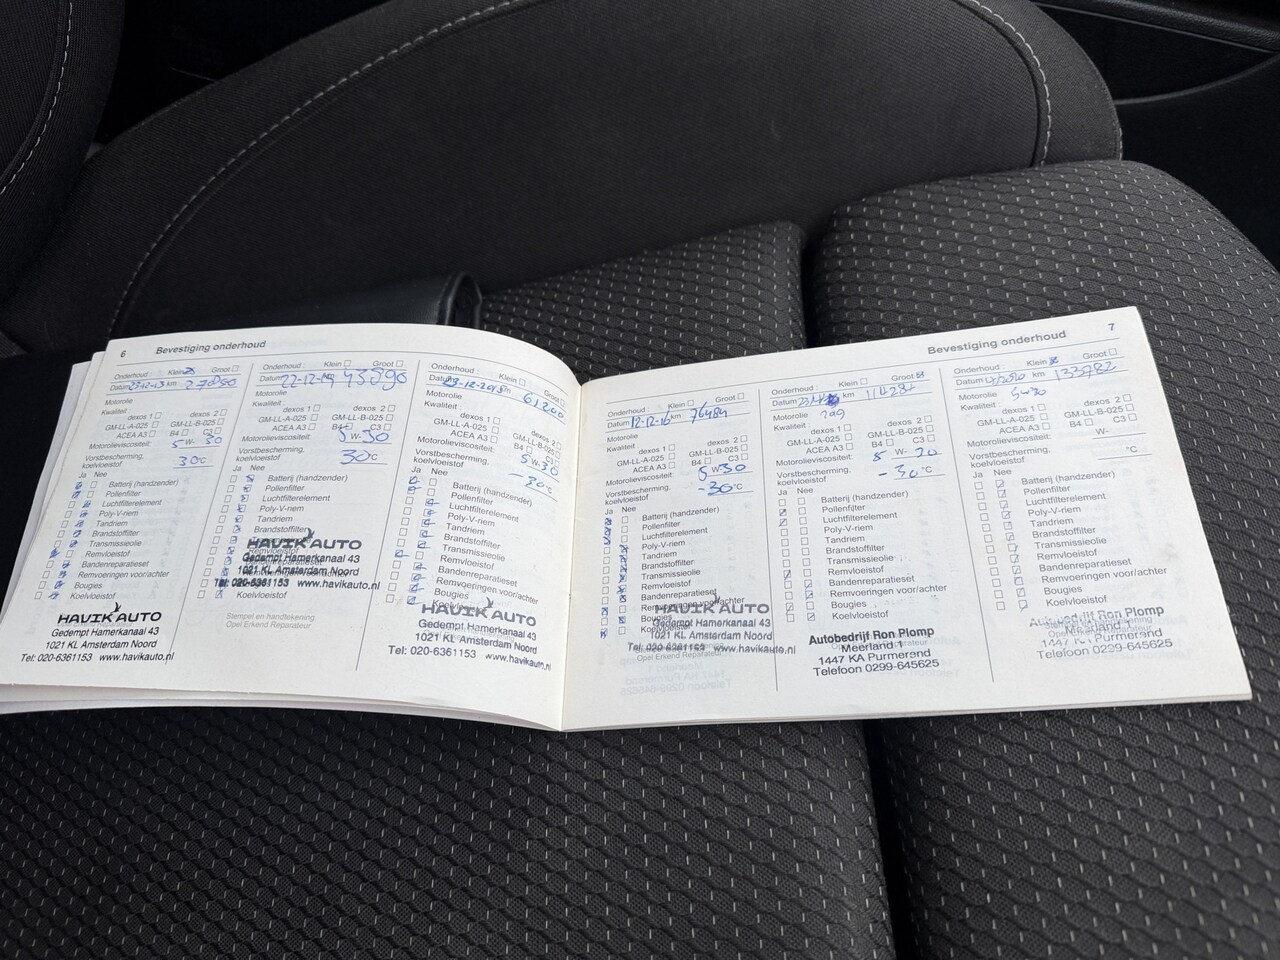 6 Bevestiging onderhoud
Onderhoud : Klein Groot
Datum 23-12-13 km
Motorolie
Kwaliteit :
dexos 1 dexos 2
GM-LL-A-025 GM-LL-B-025
ACEA A3 B4 C3
Motorolieviscositeit: 5 W- 30
Vorstbescherming,
koelvloeistof 30°C
Ja Nee
Batterij (handzender)
Pollenfilter
Luchtfilterelement
Poly-V-riem
Tandriem
Brandstoffilter
Transmissieolie
Remvloeistof
Bandenreparatieset
Remvoeringen voor/achter
Bougies
Koelvloeistof
HAVIK AUTO
Gedempt Hamerkanaal 43
1021 KL Amsterdam Noord
Tel: 020-6361153 www.havikauto.nl
Onderhoud : Klein Groot
Datum 22-12-14 43590
Motorolie
Kwaliteit :
dexos 1 dexos 2
GM-LL-A-025 GM-LL-B-025
ACEA A3 B4 C3
Motorolieviscositeit: 5 W- 30
Vorstbescherming,
koelvloeistof 30°C
Ja Nee
Batterij (handzender)
Pollenfilter
Luchtfilterelement
Poly-V-riem
Tandriem
Brandstoffilter
Remvloeistof
Bougies
Koelvloeistof
HAVIK AUTO
Gedempt Hamerkanaal 43
1021 KL Amsterdam Noord
Tel: 020-6361153 www.havikauto.nl
Stempel en handtekening
Opel Erkend Reparateur
Onderhoud : Klein Groot
Datum km 61.200
Motorolie
Kwaliteit :
dexos 1 dexos 2
GM-LL-A-025 GM-LL-B-025
ACEA A3 B4 C3
Motorolieviscositeit: 5 W- 30
Vorstbescherming,
koelvloeistof -30°C
Ja Nee
Batterij (handzender)
Pollenfilter
Luchtfilterelement
Poly-V-riem
Tandriem
Brandstoffilter
Transmissieolie
Remvloeistof
Bandenreparatieset
Remvoeringen voor/achter
Bougies
Koelvloeistof
HAVIK AUTO
Gedempt Hamerkanaal 43
1021 KL Amsterdam Noord
Tel: 020-6361153 www.havikauto.nl
Bevestiging onderhoud 7
Onderhoud : Klein Groot
Datum 12-12-16 km 76484
Motorolie
Kwaliteit :
dexos 1 dexos 2
GM-LL-A-025 GM-LL-B-025
ACEA A3 B4 C3
Motorolieviscositeit: 5 W 30
Vorstbescherming,
koelvloeistof -30°C
Ja Nee
Batterij (handzender)
Pollenfilter
Luchtfilterelement
Poly-V-riem
Tandriem
Brandstoffilter
Transmissieolie
Remvloeistof
Bandenreparatieset
Bougies
HAVIK AUTO
Gedempt Hamerkanaal 43
1021 KL Amsterdam Noord
Tel: 020-6361153 www.havikauto.nl
Opel Erkend Reparateur
Onderhoud : Klein Groot
Datum km
Motorolie
Kwaliteit :
dexos 1 dexos 2
GM-LL-A-025 GM-LL-B-025
ACEA A3 B4 C3
Motorolieviscositeit: W-
Vorstbescherming,
koelvloeistof -30°C
Ja Nee
Batterij (handzender)
Pollenfilter
Luchtfilterelement
Poly-V-riem
Tandriem
Brandstoffilter
Transmissieolie
Remvloeistof
Bandenreparatieset
Remvoeringen voor/achter
Bougies
Koelvloeistof
Autobedrijf Ron Plomp
Meerland 1
1447 KA Purmerend
Telefoon 0299-645625
Onderhoud : Klein Groot
Datum km 133782
Motorolie 5w30
Kwaliteit :
dexos 1 dexos 2
GM-LL-A-025 GM-LL-B-025
ACEA A3 B4 C3
Motorolieviscositeit: W-
Vorstbescherming,
koelvloeistof °C
Ja Nee
Batterij (handzender)
Pollenfilter
Luchtfilterelement
Poly-V-riem
Tandriem
Brandstoffilter
Transmissieolie
Remvloeistof
Bandenreparatieset
Remvoeringen voor/achter
Bougies
Koelvloeistof
Autobedrijf Ron Plomp
Meerland 1
1447 KA Purmerend
Telefoon 0299-645625